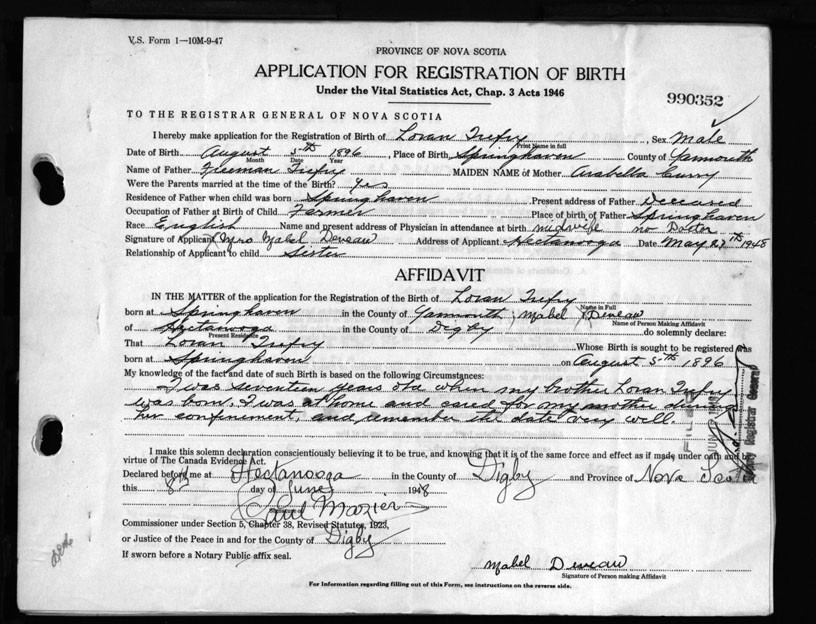 V.S. Form 1—10M-9-47
PROVINCE OF NOVA SCOTIA
APPLICATION FOR REGISTRATION OF BIRTH
Under the Vital Statistics Act, Chap. 3 Acts 1946
990352
TO THE REGISTRAR GENERAL OF NOVA SCOTIA
I hereby make application for the Registration of Birth of Loran Trefry, Sex Male
Print Name in full
Date of Birth August 5th 1896, Place of Birth Springhaven County of Yarmouth
Month Date Year
Name of Father Freeman Trefry MAIDEN NAME of Mother Arabella Curry
Were the Parents married at the time of the Birth? Yes
Residence of Father when child was born Springhaven Present address of Father Deceased
Occupation of Father at Birth of Child Farmer Place of birth of Father Springhaven
Race English Name and present address of Physician in attendance at birth midwife no Doctor
Signature of Applicant Mrs Mabel Deveau Address of Applicant Hectanooga Date May 27th 1948
Relationship of Applicant to child Sister
AFFIDAVIT
IN THE MATTER of the application for the Registration of the Birth of Loran Trefry
Name in Full
born at Springhaven in the County of Yarmouth; Mabel Deveau
Name of Person Making Affidavit
of Hectanooga in the County of Digby do solemnly declare:
Present Residence
That Loran Trefry Whose Birth is sought to be registered was
born at Springhaven on August 5th 1896
My knowledge of the fact and date of such Birth is based on the following Circumstances:
I was seventeen years old when my brother Loran Trefry
was born. I was at home and cared for my mother during
her confinement, and remember the date very well.
I make this solemn declaration conscientiously believing it to be true, and knowing that it is of the same force and effect as if made under oath and by
virtue of The Canada Evidence Act.
Declared before me at Hectanooga in the County of Digby and Province of Nova Scotia
this 8th day of June 1948
Paul Mazier
Commissioner under Section 5, Chapter 38, Revised Statutes, 1923,
or Justice of the Peace in and for the County of Digby
If sworn before a Notary Public affix seal.
Mabel Deveau
Signature of Person making Affidavit
For Information regarding filling out of this Form, see instructions on the reverse side.
Registrar General